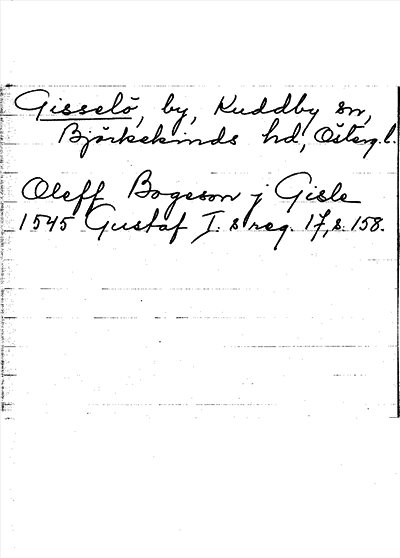 Gisselö, by, Kuddby sn,
Björkekinds hd, Österg.l.
Oleff Bogeson j Gisle
1545 Gustaf I. s reg. 17, s. 158.